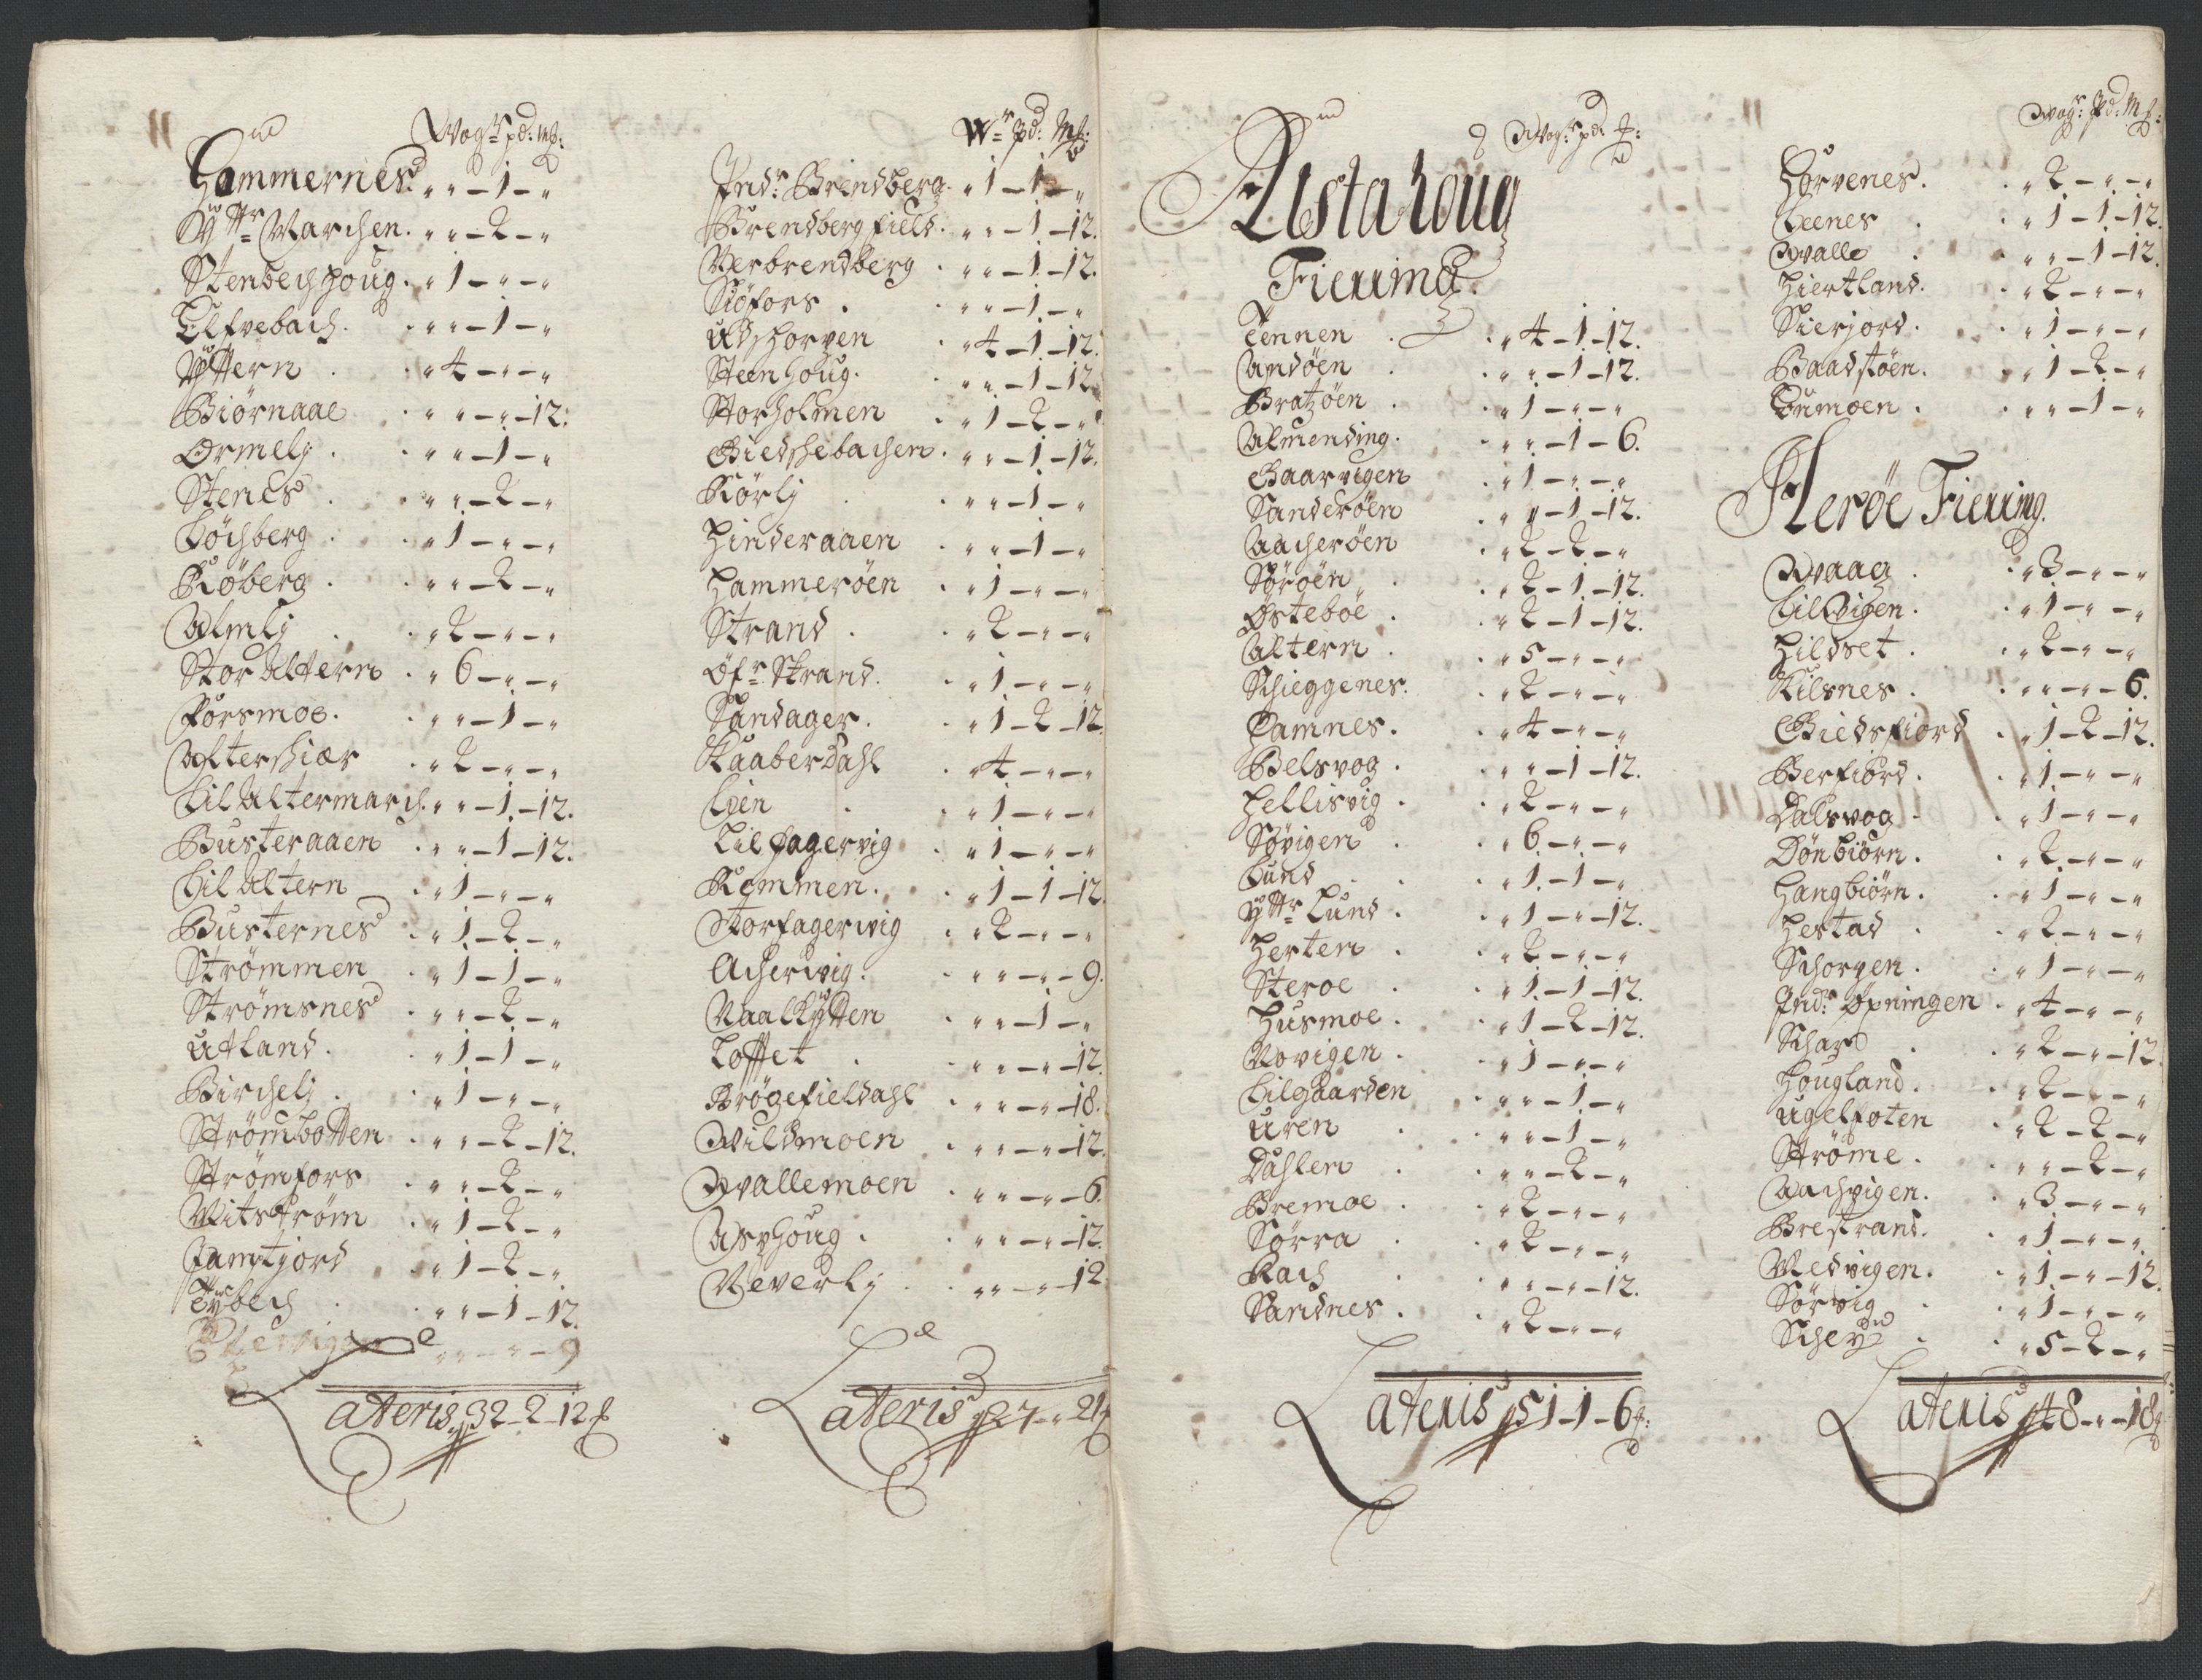 Wog: pd: mk:
Hammernes „ „ – 1 – „
Yttr Marchen. „ „ – 2 – „
Stenbechhoug. „ 1 – „ – „
Elfvebach. „ „ – 1 – „
Yttern „ 4 – „ – „
Biörnaae „ „ – „ – 12:
Ormelj „ „ – 1 – „
Stenes „ „ – 2 – „
Löchberg „ 1 – „ – „
Röberg „ „ – 2 – „
Almlj „ 2 – „ – „
Stor Altern „ 6 – „ – „
Forsmoe. „ „ – 1 – „
Alterskiær „ 2 – „ – „
Lil Altermarch. „ „ – 1 – 12.
Busteraaen „ „ – 1 – 12:
Lil Altern „ 1 – „ – „
Busternes „ 1 – 2 – „
Strömmen „ 1 – 1 – „
Strömsnes „ „ – 2 – „
Utland. „ 1 – 1 – „
Birchelj „ 1 – „ – „
Strömbotten „ „ – 2 – 12.
Strömfors „ „ – 2 – „
Mitström „ 1 – 2 – „
Jamtjord „ 1 – 2 – „
Ytbech „ „ – 1 – 12.
„ „ – „ – 9
Lateris 32 – 2 – 12
Wr pd: Mk:
Indr Brendberg „ 1 – 1 – „
Brendbergfield. „ „ – 1 – 12.
Nerbrendberg „ „ – 1 – 12.
Siöfors „ „ – 1 – „
Udschorven „ 4 – 1 – 12.
Steenhoug. „ „ – 1 – 12
Storholmen „ 1 – 2 – „
Giedschebachen. „ „ – 1 – 12.
Rörlj „ „ – 1 – „
Hinderaaen „ „ – 1 – „
Hammeröen „ 1 – „ – „
Strand „ 2 – „ – „
Öfr Strand. „ 1 – „ – „
Sandager. „ 1 – 2 – 12
Kaaberdahl „ 4 – „ – „
Lien „ 1 – „ – „
Lilfagervig „ 1 – „ – „
Remmen. „ 1 – 1 – 12.
Storfagerwig „ 2 – „ – „
Acherwig. „ „ – „ – 9.
Naalkytten „ „ – 1 – „
Loffet „ „ – „ – 12.
Brögefieldahl „ „ – „ – 18.
Wildmoen „ „ – „ – 12.
Wallemoen „ „ – „ – 6.
Asphoug. „ „ – „ – 12.
Neverlj „ „ – „ – 12
Lateris 27 – „ 21
Wog: pd: mk:
Alstahoug
Fierring
Tennen „ 4 – 1 – 12.
Andöen „ „ – 1 – 12.
Bratzöen „ 1 – „ – „
Almending. „ „ – 1 – 6.
Gaarvigen „ 1 – „ – „
Sanderöen „ „ – 1 – 12.
Aacheröen „ 2 – 2 – „
Söröen „ 2 – 1 – 12.
Österboe „ 2 – 1 – 12.
Altern „ 5 – „ – „
Schieggenes. „ 2 – „ – „
Tamnes. „ 4 – „ – „
Belsvog. „ „ – 1 – 12.
Hellisvig. „ 2 – „ – „
Søvigen „ 6 – „ – „
Lund „ 1 – 1 – „
Yttr Lund. „ 1 – „ – 12.
Herten „ 2 – „ – „
Steroe „ 1 – 1 – 12.
Husmoe. „ 1 – 2 – 12.
Novigen. „ 1 – „ – „
Lilgaarden „ „ – 1 – „
Uren „ „ – 1 – „
Dahlen „ „ – 2 – „
Bremoe „ 2 – „ – „
Sörra „ 2 – „ – „
Rach „ „ – „ – 12.
Sandnes. „ 2 – „ – „
Lateris 51 – 1 – 6
Wog: Pd: Mk:
Horvenes. „ 2 – „ – „
Leenes „ 1 – 1 – 12.
Walle „ „ – 1 – 12.
Hiertland. „ 2 – „ – „
Skierjord. „ 1 – „ – „
Baadstöen. „ 1 – 2 – „
Tumoen. „ „ – 1 – „
Herøe Fierring.
Waag „ 3 – „ – „
Lilvigen. „ 1 – „ – „
Hildset. „ 2 – „ – „
Kilsnes. „ „ – „ – 6.
Giedsfiord „ 1 – 2 – 12.
Berfiord. „ 1 – „ – „
Dalsvog „ 1 – „ – „
Dönbiörn. „ 2 – „ – „
Hangbiörn. „ 1 – „ – „
Hestad „ 2 – „ – „
Schorpen. „ 1 – „ – „
Indr Øpningen. „ 4 – „ – „
Schar „ 2 – „ – 12.
Hougland. „ 2 – „ – „
Ugelfoten „ 2 – 2 – „
Ströme. „ „ – 2 – „
Aachvigen. „ 3 – „ – „
Brestrand. „ 1 – „ – „
Medvigen. „ 1 – „ – 12.
Sörvig „ 1 – „ – „
Schey „ 5 – 2 – „
Lateris 48 – „ – 18